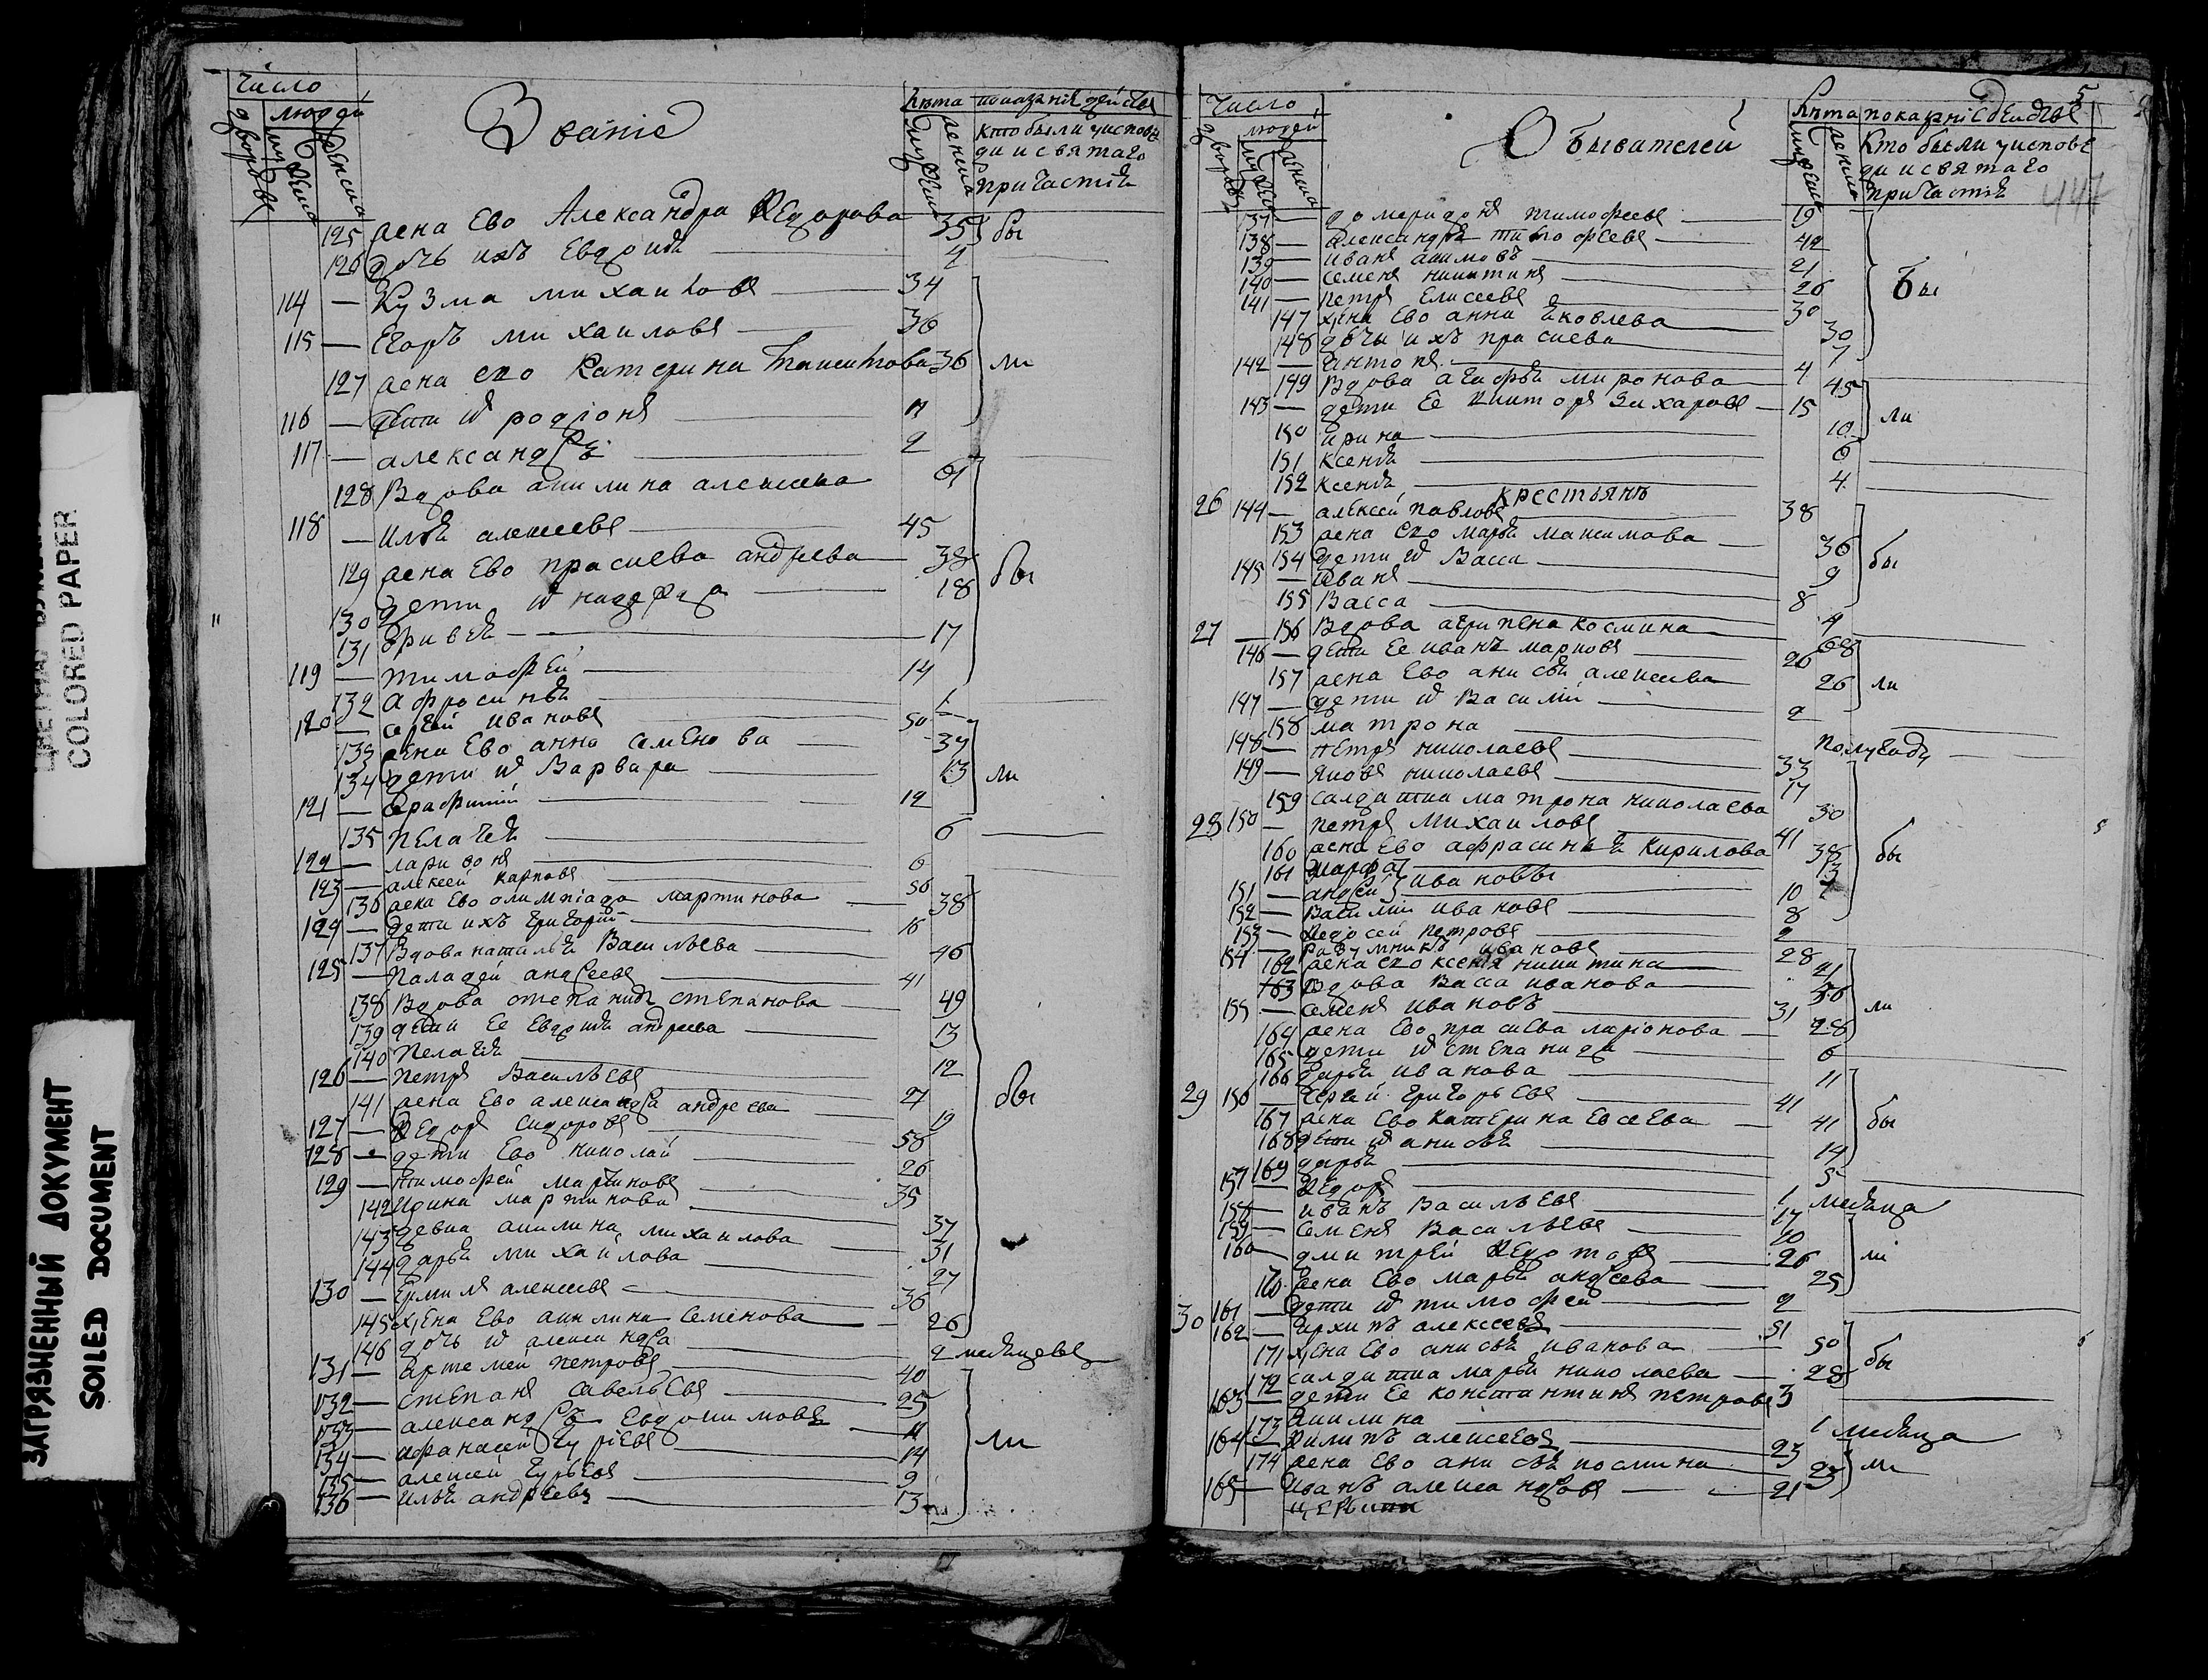 COLORED PAPER
ЗАГРЯЗНЕННЫЙ ДОКУМЕНТ
SOILED DOCUMENT
Число
людей
Званiе
лѣта
кто были у испове
ди и святаго
причастiя
125 жена Ево Александра Ѳедорова 35 бы
126 дочь ихъ Евдокия 4
114 — Кузма михаиловъ 34
115 — Егоръ михаиловъ 36
127 жена его Катерина 36 ли
116 — дети их родiонъ
117 — александръ 2
128 Вдова акилина алексеева 61
118 — Илья алексеевъ 45
129 жена Ево прасковя андреева 38 бы
130 дети их надежда 18
131 17
119 — тимофей 14
132 Афросинья
120 — сергей ивановъ 50
133 жена Ево анна семенова 37
134 дети их Варвара 13 ли
121 — 12
135 пелагея 6
122 — ларивонъ 6
123 — алексей карповъ 56
136 жена Ево олимпiада мартинова 38
124 — дети ихъ григорий 16
137 Вдова наталья Васильева 46
125 — Паладей андреевъ 41
138 Вдова степанида степанова 49
139 дети Ее Евдокия андреева 13
140 пелагея 12
126 — петръ Васильевъ 27
141 жена Ево александра андреева 19 бы
127 — Ѳедоръ сидоровъ 58
128 — дети Ево николай 26
129 — тимофей мартиновъ 35
142 Ирина мартинова 37
143 девка акилина михаилова 31
144 дарья михайлова 27
130 — Ермилъ алексеевъ 36
145 жена Ево акилина семенова 26
146 дочь их александра 2
131 — Артемеи петровъ 40
132 — степанъ савельевъ 25
133 — александръ Евдокимовъ 11 ли
134 — афанасей гурiевъ 14
135 — алексей гурьевъ 9
136 — Илья андреевъ 13
5
Число
людей
Обывателей
лѣта
Кто были у исповѣ
ди и святаго
причастiя
447
137 — тимофеевъ 19
138 — александръ тимофеевъ 42
139 — иванъ акимовъ 21
140 — семенъ никитинъ 26 бы
141 — петръ Елисеевъ 30
147 жена Ево анна яковлева 30
148 дочь ихъ прасковя 7
142 — антонъ 4
149 Вдова агафья миронова 45
143 — дети Ее викторъ захаровъ 15 ли
150 ирина 10
151 ксенья 6
152 ксенья 4
крестьянъ
26 144 — алексей павловъ 38
153 жена его марья максимова 36
154 дети их Васса 9 бы
145 — Иванъ 8
155 Васса 4
27 — 156 Вдова агрипена космина 68
146 — дети Ее иванъ марковъ 26
157 жена Ево анисья алексеева 26 ли
147 — дети их Василий 2
158 матрона полугоду
148 — петръ николаевъ 33
149 — яковъ николаевъ 17
159 салдатка матрона николаева 30
28 150 — петръ михаиловъ 41
160 жена Ево афрасинья Кирилова 38 бы
161 марфа 13
151 — андрей ивановы 10
152 — Василий ивановъ 8
153 — Ѳедосей петровъ 2
154 — ивановъ 28
162 жена его ксения никитина 21
163 Вдова Васса иванова 56
155 — семенъ ивановъ 31 ли
164 жена Ево прасковя ларiонова 28
165 дети их степанида 6
166 дарья иванова 11
29 156 — сергей григорьевъ 41
167 жена Ево Катерина Евсеева 41 бы
168 дети их анисья 14
169 дарья 5
157 — Ѳедоръ 1 месяца
158 — иванъ Васильевъ 17
159 — семенъ Васильевъ 10
160 — дмитрей Ѳедотовъ 26 ли
170 жена Ево марья андреева 25
161 — дети их тимофей 2
30 162 — архипъ алексеевъ 51
171 жена Ево анисья иванова 50
172 салдатка марья николаева 28 бы
163 — дети Ее константинъ петровъ 3
173 Акилина 1 месяца
164 — Филипъ алексеевъ 23
174 жена Ево анисья космина 23 ли
165 — Иванъ александровъ 21